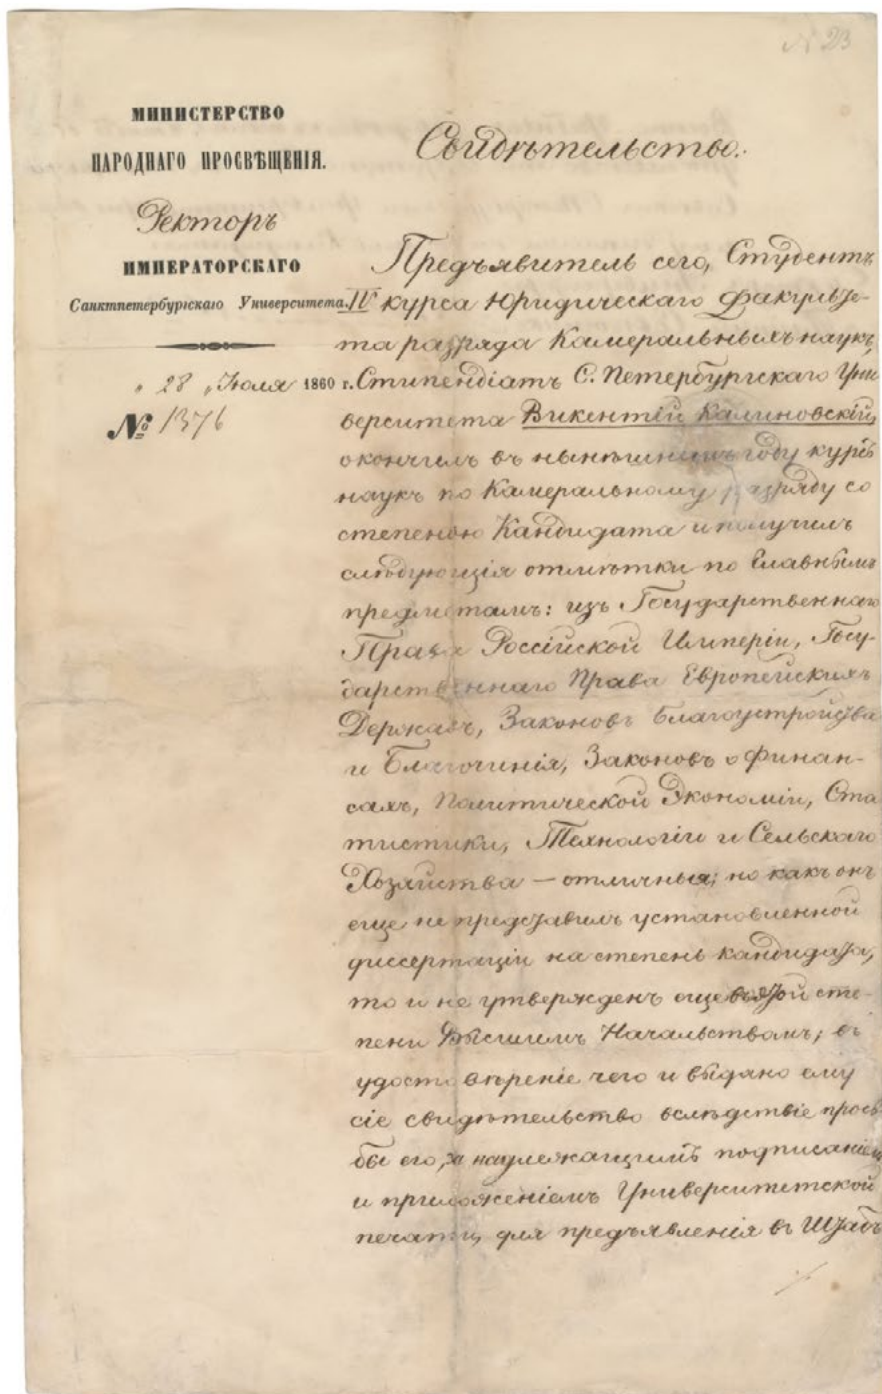 № 23
МИНИСТЕРСТВО
НАРОДНАГО ПРОСВѢЩЕНІЯ.
Ректоръ
ИМПЕРАТОРСКАГО
Санктпетербургскаго Университета.
" 28 " Іюля 1860 г.
№ 1376
Свидѣтельство.
Предъявитель сего, Студентъ
IV курса Юридическаго Факульте-
та разряда Камеральныхъ наукъ,
Стипендіатъ С. Петербургскаго Уни
верситета Викентій Калиновскій,
окончилъ въ нынѣшнемъ году курсъ
наукъ по Камеральному разряду со
степенью Кандидата и получилъ
слѣдующія отмѣтки по Главнымъ
предметамъ: изъ Государственнаго
Права Россійской Имперіи, Госу-
дарственнаго Права Европейскихъ
Державъ, Законовъ Благоустройства
и Благочинія, Законовъ о Финан-
сахъ, Политической Экономіи, Ста
тистики, Технологіи и Сельскаго
Хозяйства — отличныя; но какъ онъ
еще не представилъ установленной
диссертаціи на степень кандидата,
то и не утвержденъ еще въ этой сте-
пени Высшимъ Начальствомъ; въ
удостовѣреніе чего и выдано ему
сіе свидѣтельство вслѣдствіе прось
бы его, за надлежащимъ подписаніемъ
и приложеніемъ Университетской
печати, для предъявленія въ Штабъ